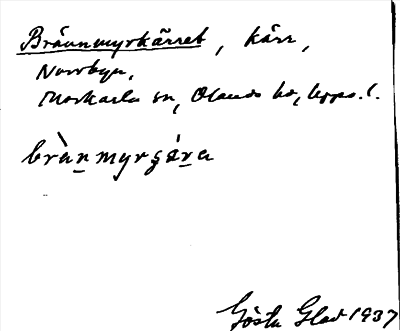 Brännmyrkärret, kärr,
Norrbyn,
Morkarla sn, Olands hd, Upps. l.
brànmyrçæ̀ra
Gösta Glad 1937